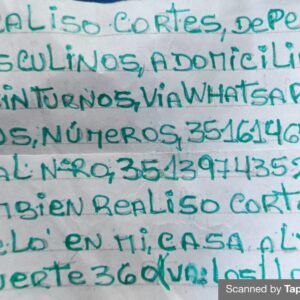 REALISO CORTES, DE PE
SCULINOS, A DOMICILI
SIN TURNOS, VIA WHATSA
OS, NÚMEROS, 3516146
AL NRO, 351397435
MBIEN REALISO CORT
ELO EN MI, CASA AL
UERTE 360
Scanned by Tap